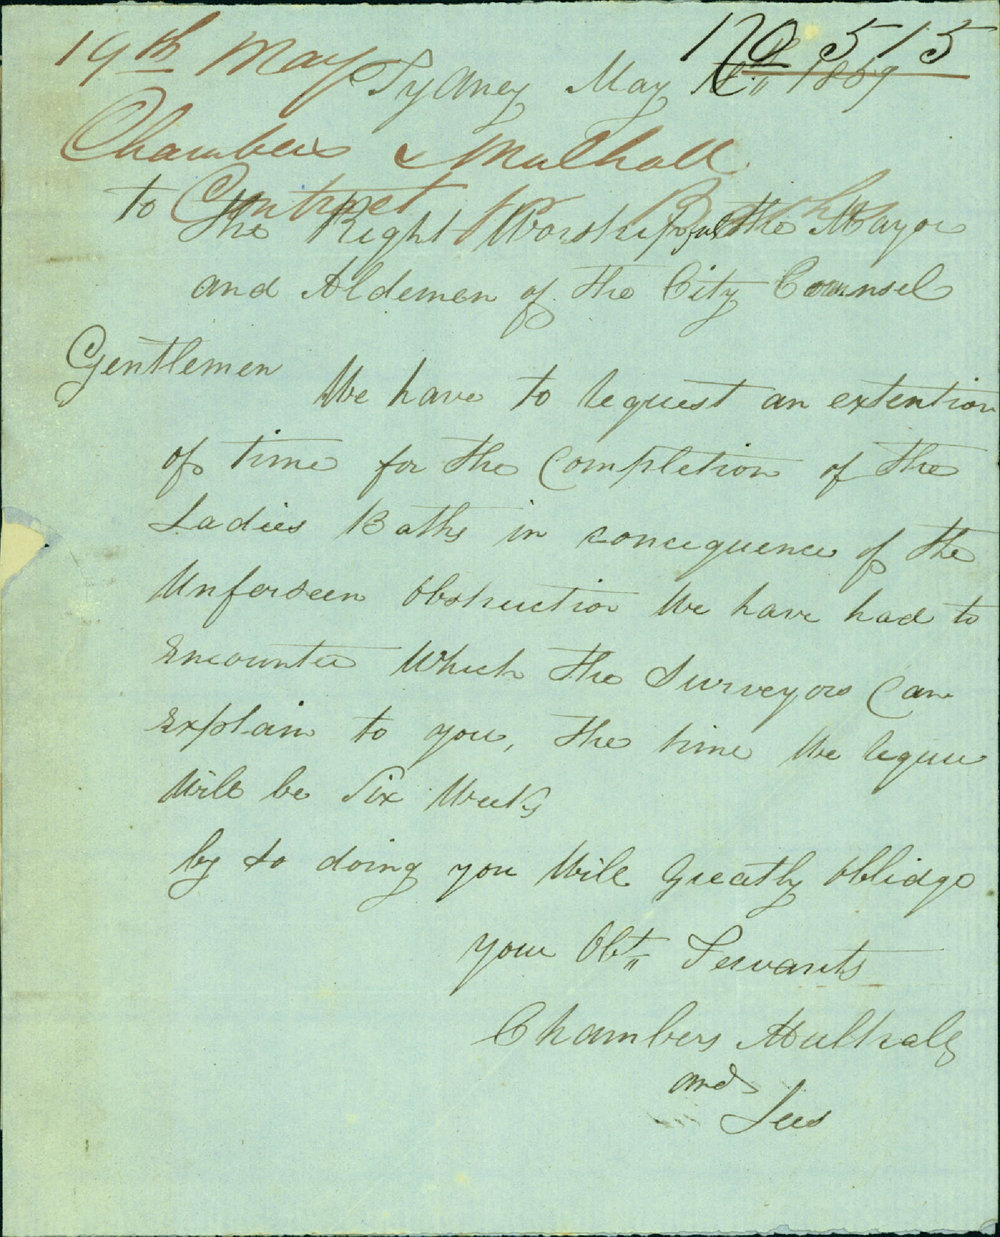 19th May
170 515
Sydney May 18th 1859
Chambers & Mulhall
Contract for Baths
to The Right Worshipful the Mayor
and Aldemen of the City Counsel
Gentlemen
We have to request an extention
of time for the Completion of the
Ladies Baths in concequence of the
Unforseen Obstruction We have had to
Encounter Which the Surveyors Can
Explain to you, the time We require
Will be Six Weeks
by so doing you Will Greatly Oblidge
your Obt Servants
Chambers Mulhall
and
Lees